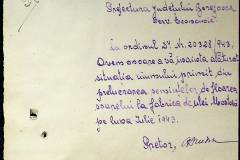 Prefectura Judeţului Bengasova
Serv. Economic
La ordinul Dv. No. 20328/943,
Avem onoare a vă înainta alăturat
situaţia uleiului primit din
prelucrarea seminţelor de floarea
soarelui la fabrica de ulei
pe luna Iulie 1943.
Pretor,